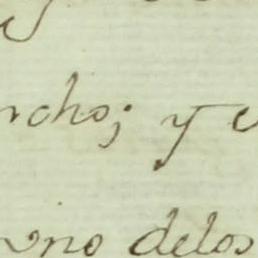 ncho; y
uno delos